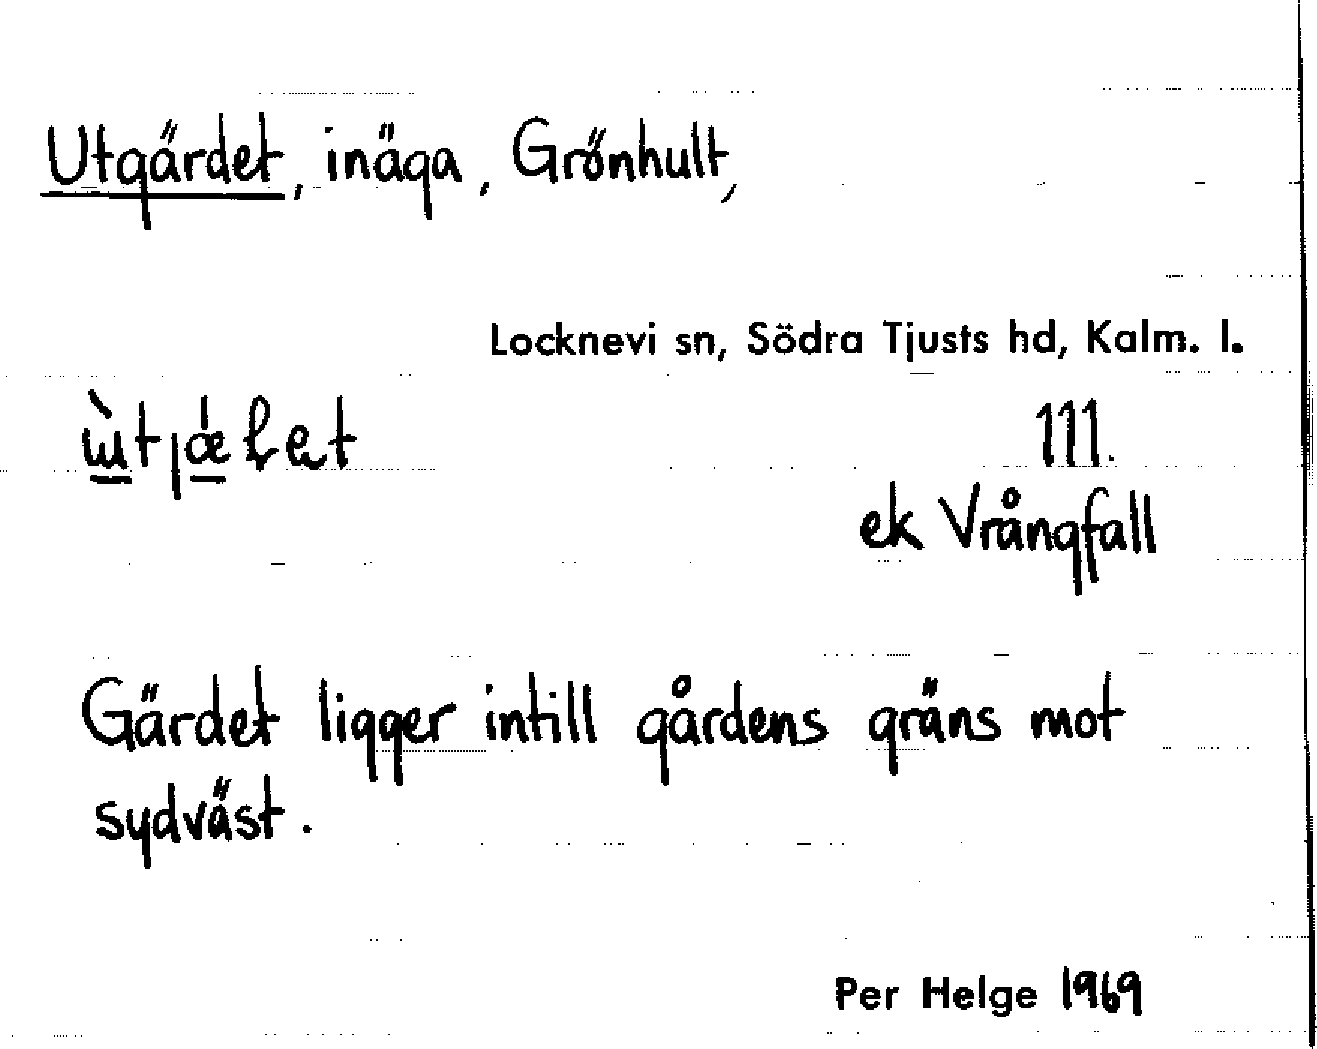 Utgärdet, inäga, Grönhult,
Locknevi sn, Södra Tjusts hd, Kalm. l.
111.
ek Vrångfall
Gärdet ligger intill gårdens gräns mot
sydväst.
Per Helge 1969